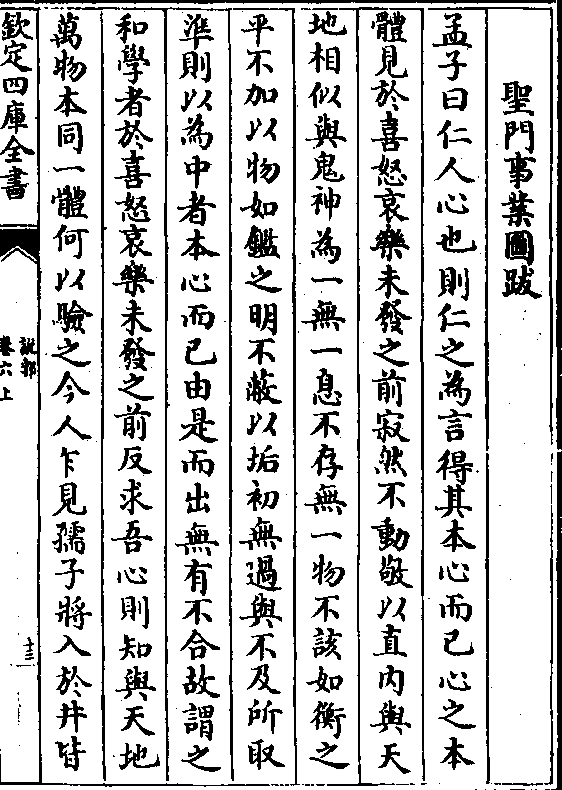 聖門事業圖跋
孟子曰仁人心也則仁之為言得其本心而已心之本
體見於喜怒哀樂未發之前寂然不動敬以直内與天
地相似與鬼神為一無一息不存無一物不該如衡之
平不加以物如鑑之明不蔽以垢初無過與不及所取
準則以為中者本心而已由是而出無有不合故謂之
和學者於喜怒哀樂未發之前反求吾心則知與天地
萬物本同一體何以驗之今人乍見孺子將入於井皆
欽定四庫全書
說郛
卷六上
十三